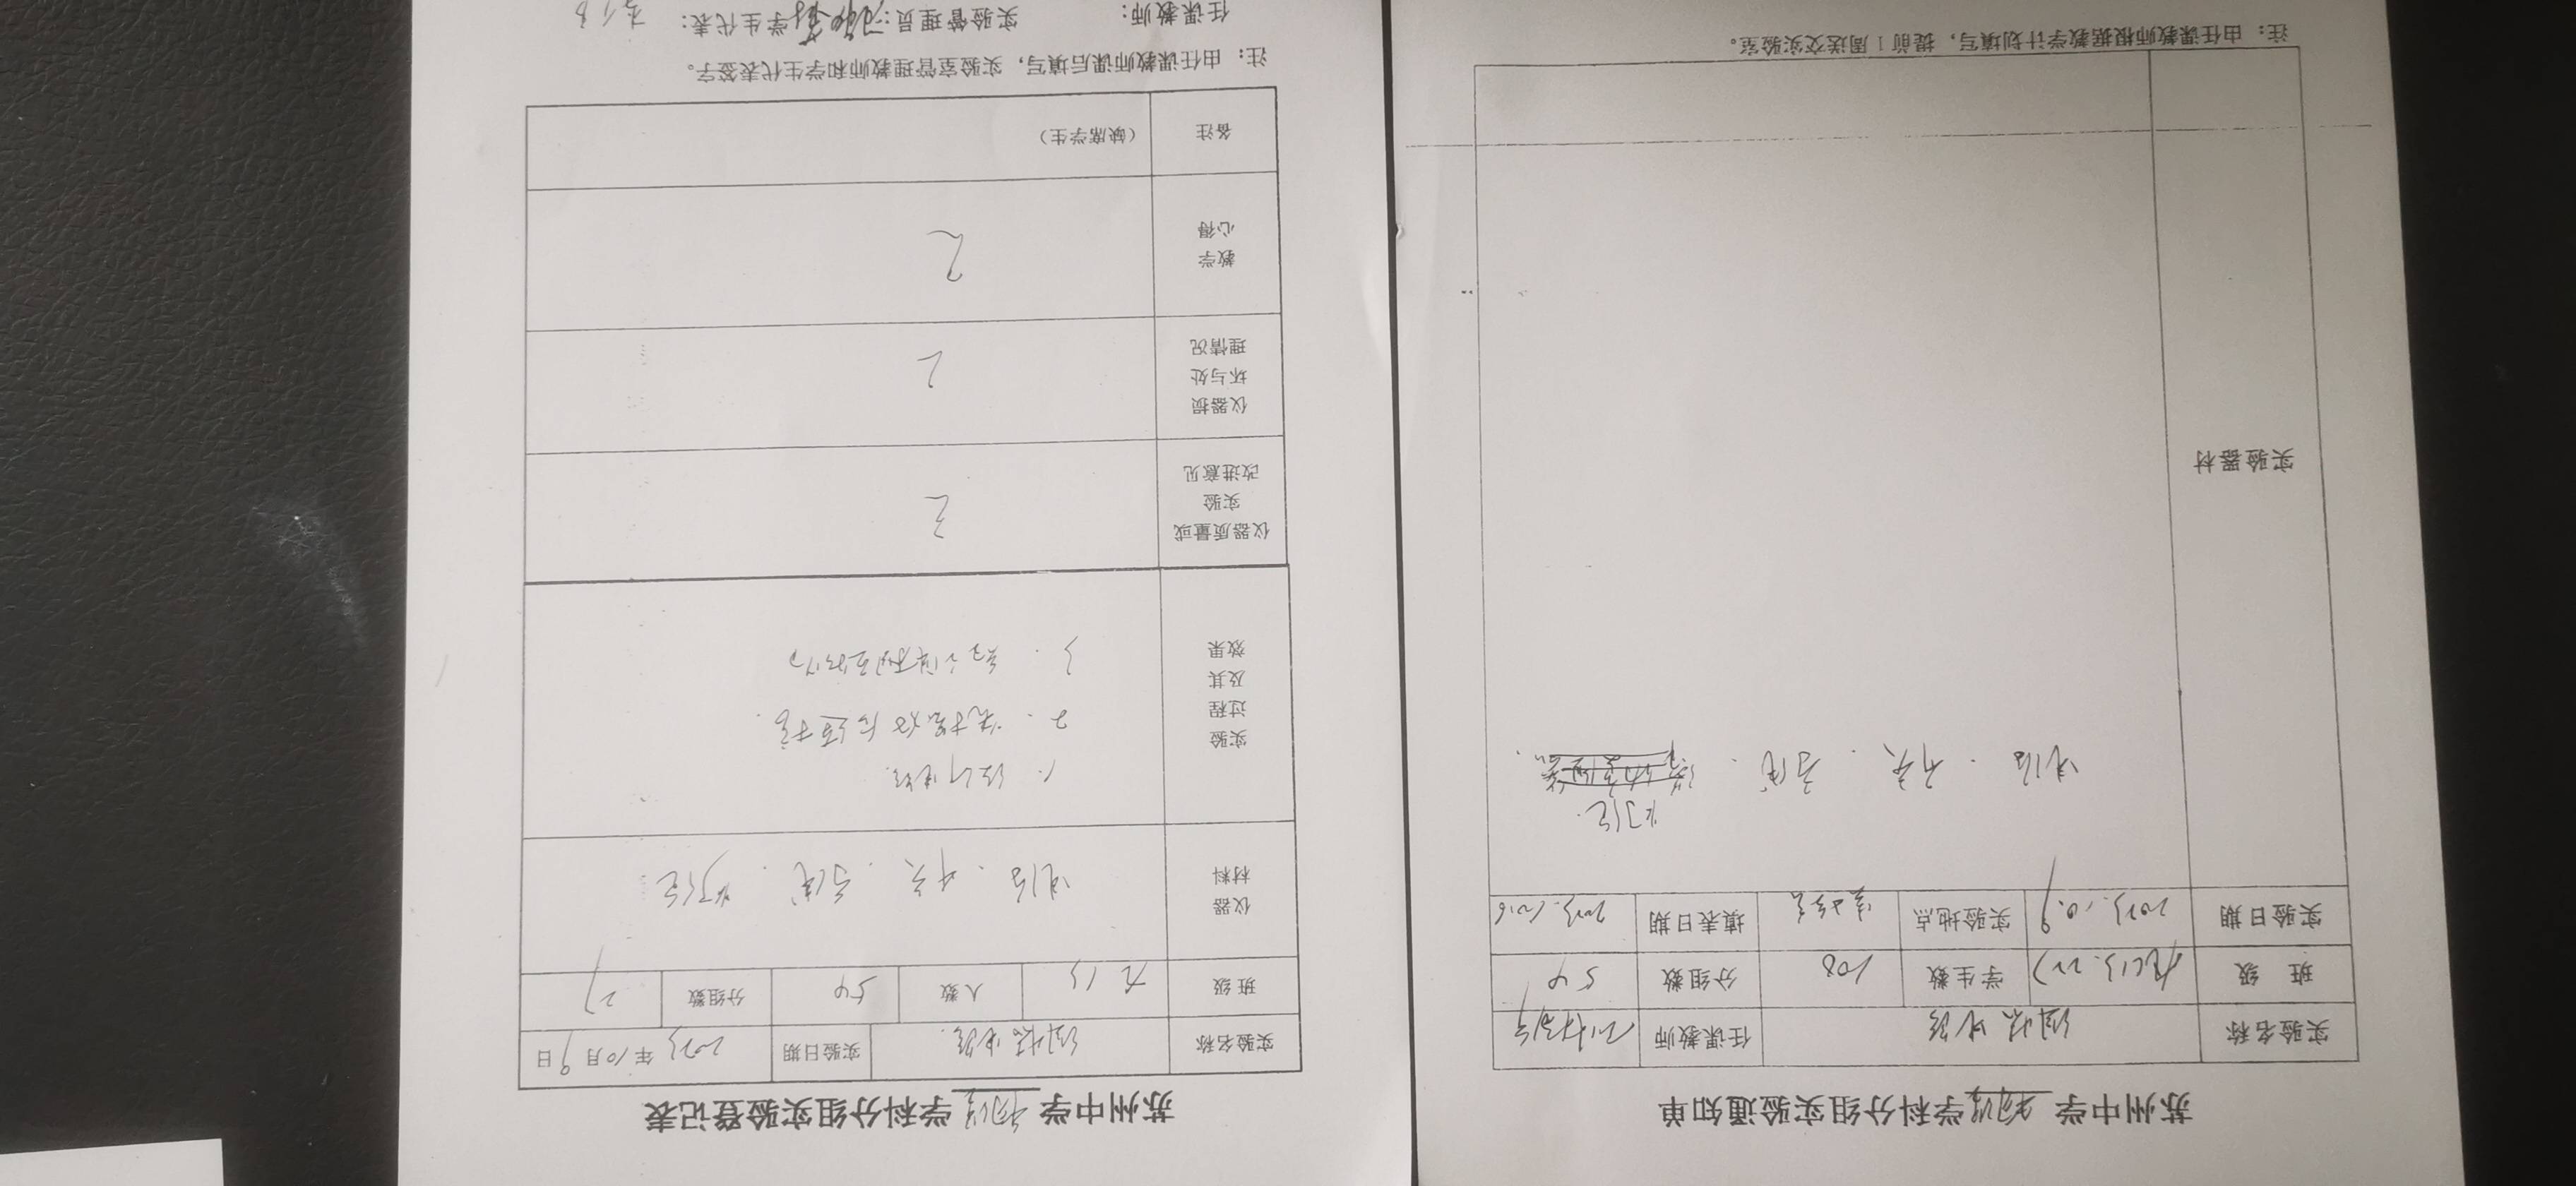 苏州中学 物理 学科分组实验通知单
实验名称 组成电路 任课教师
班 级 九(13.22) 学生数 108 分组数 54
实验日期 2023.10.9 实验地点 实验室 填表日期 2023.10.6
实验器材
灯泡
电池、开关、导线、
注：由任课教师根据教学计划填写，提前1周送交实验室。
苏州中学 物理 学科分组实验登记表
实验名称 组成电路 实验日期 2023年10月9日
班级 九13 人数 54 分组数 27
仪器材料 电池、开关、导线、灯泡
实验过程及其效果
1. 设计电路
2.
3.
仪器质量或实验改进意见 无
仪器损坏与处理情况 无
教学心得 无
备注 （缺席学生）
注：由任课教师课后填写，实验室管理教师和学生代表签字。
任课教师： 实验管理员： 学生代表：